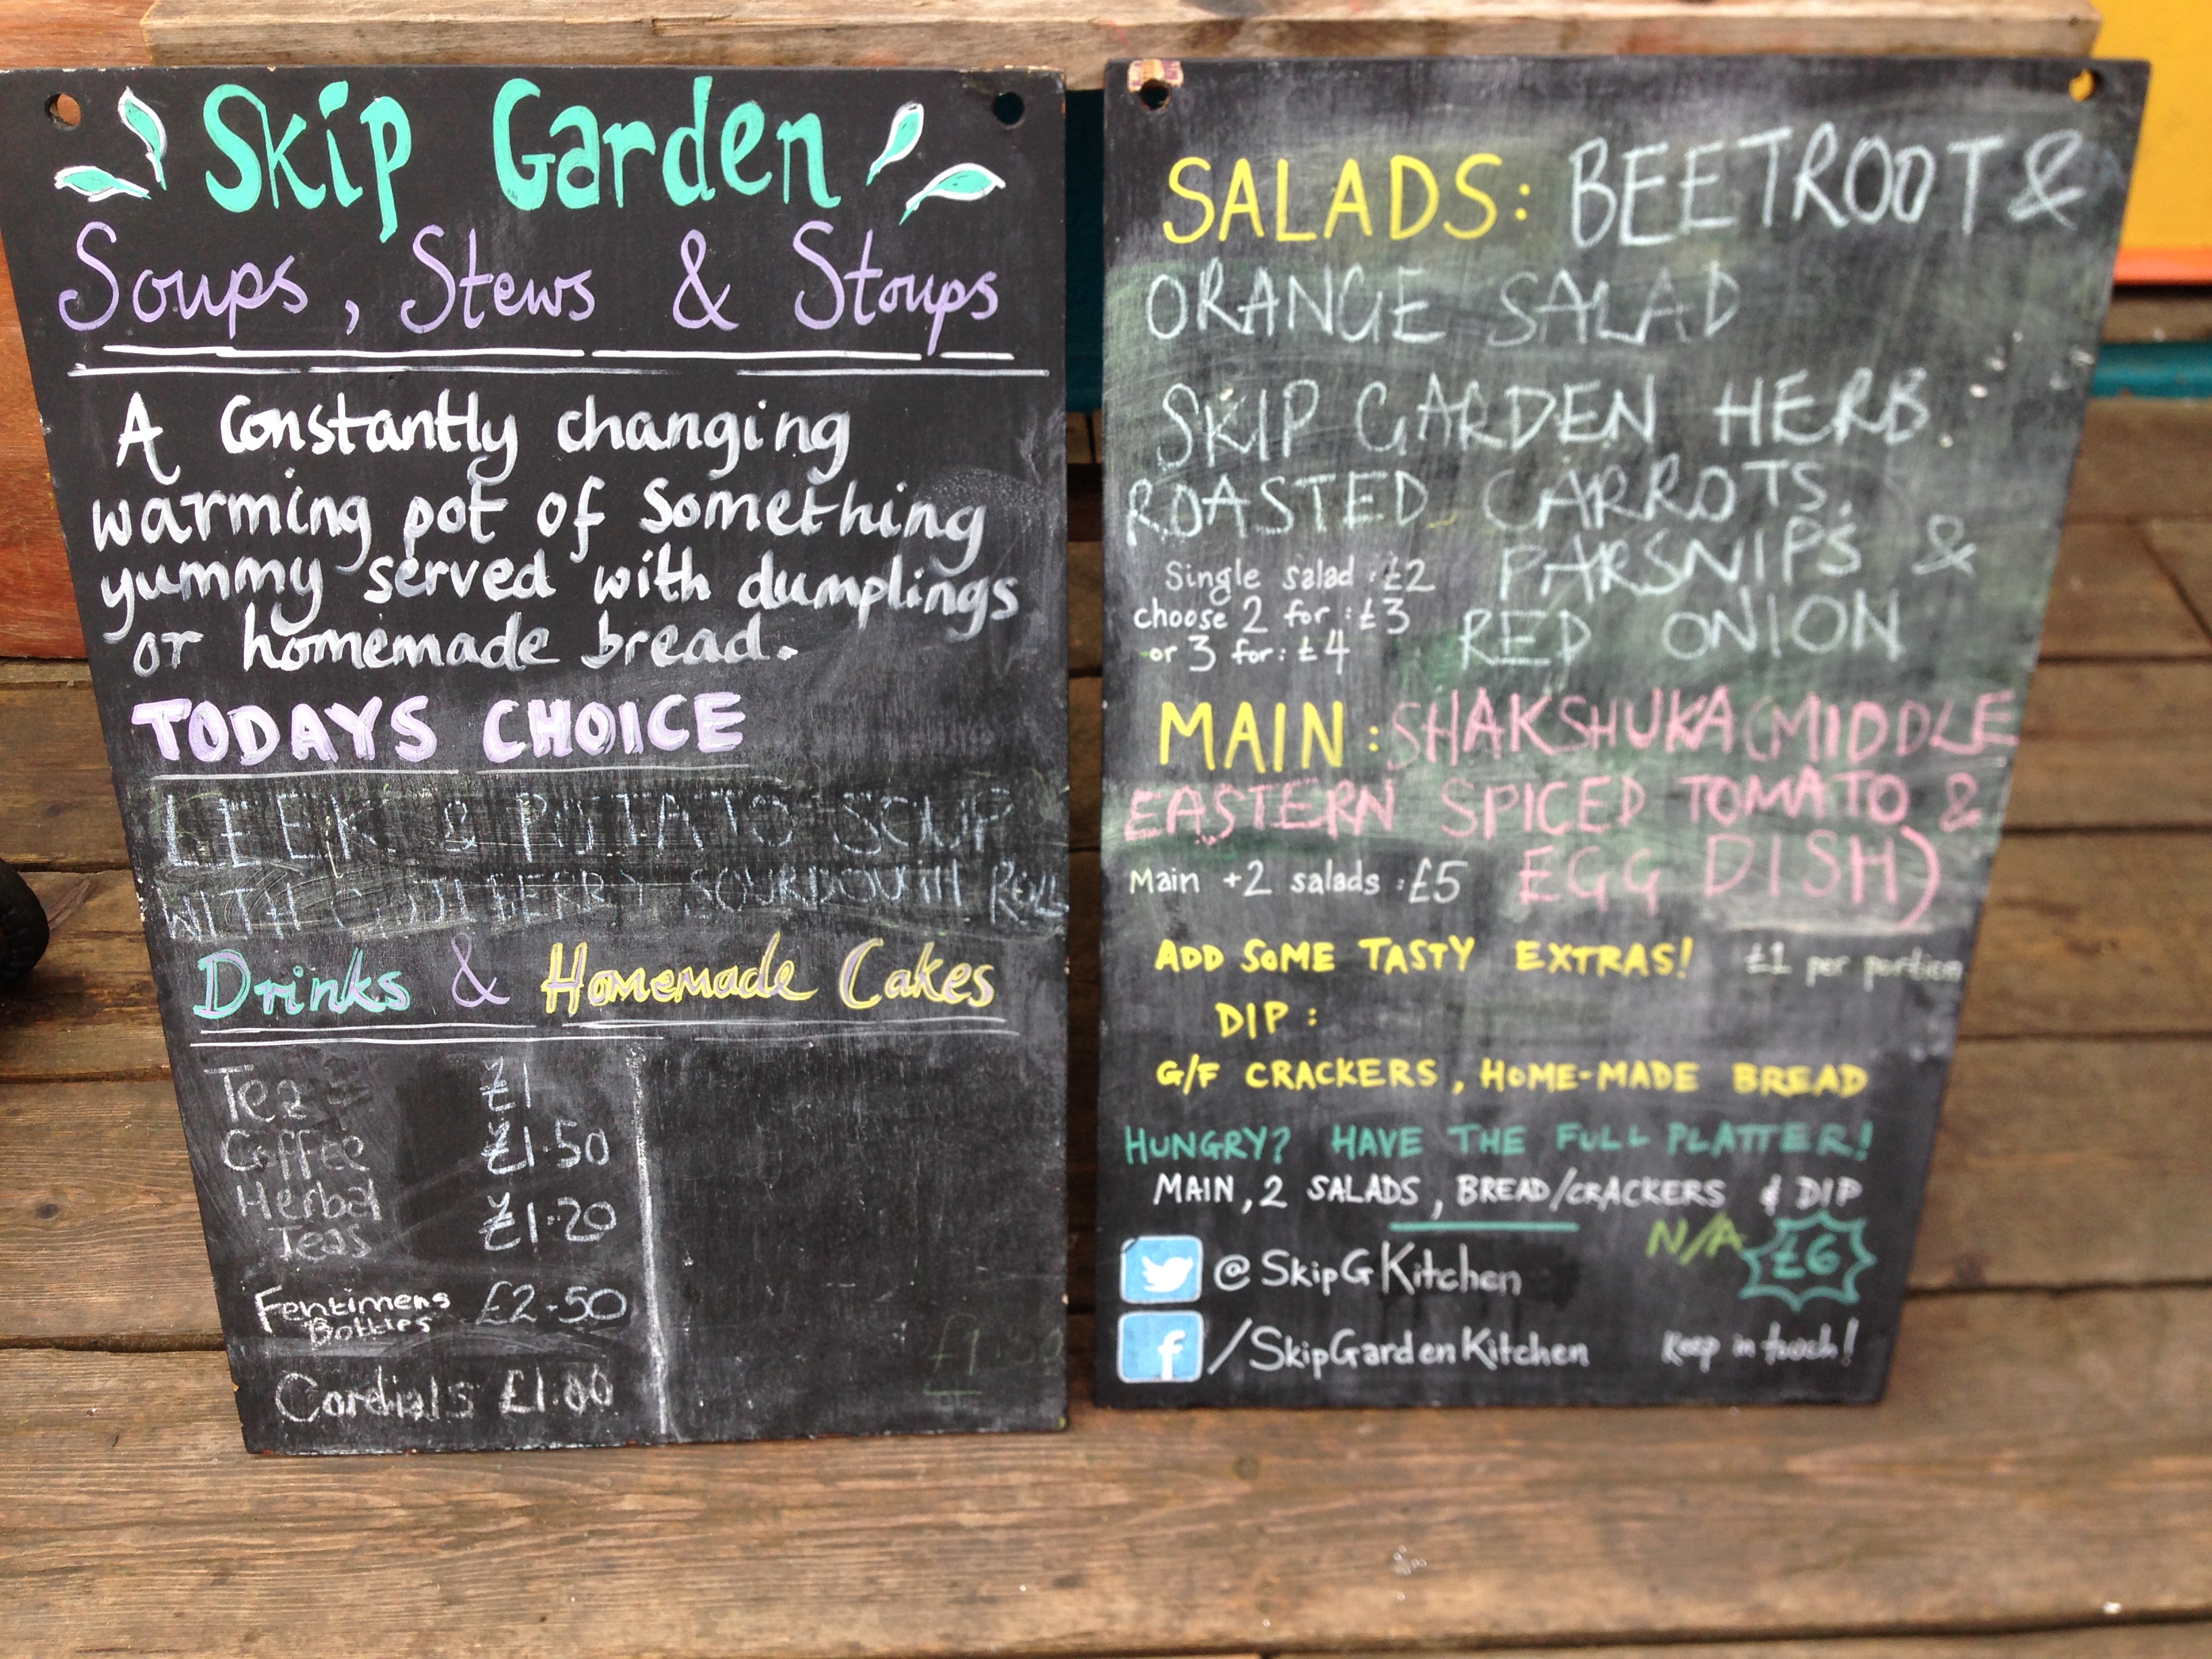 Skip Garden
Soups, Stews & Stoups
A Constantly changing
warming pot of something
yummy served with dumplings
or homemade bread.
TODAYS CHOICE
LEEK & POTATO SOUP
WITH SOURDOUGH ROLL
Drinks & Homemade Cakes
Tea £1
Coffee £1.50
Herbal
Teas £1.20
Fentimens
Bottles £2.50
Cordials £1.00
SALADS: BEETROOT &
ORANGE SALAD
SKIP GARDEN HERB
ROASTED CARROTS,
PARSNIPS &
RED ONION
Single salad : £2
choose 2 for : £3
or 3 for : £4
MAIN : SHAKSHUKA (MIDDLE
EASTERN SPICED TOMATO &
EGG DISH)
Main + 2 salads : £5
ADD SOME TASTY EXTRAS! £1 per portion
DIP :
G/F CRACKERS, HOME-MADE BREAD
HUNGRY? HAVE THE FULL PLATTER!
MAIN, 2 SALADS, BREAD/CRACKERS & DIP
N/A £6
@SkipGKitchen
f /SkipGardenKitchen
Keep in touch!